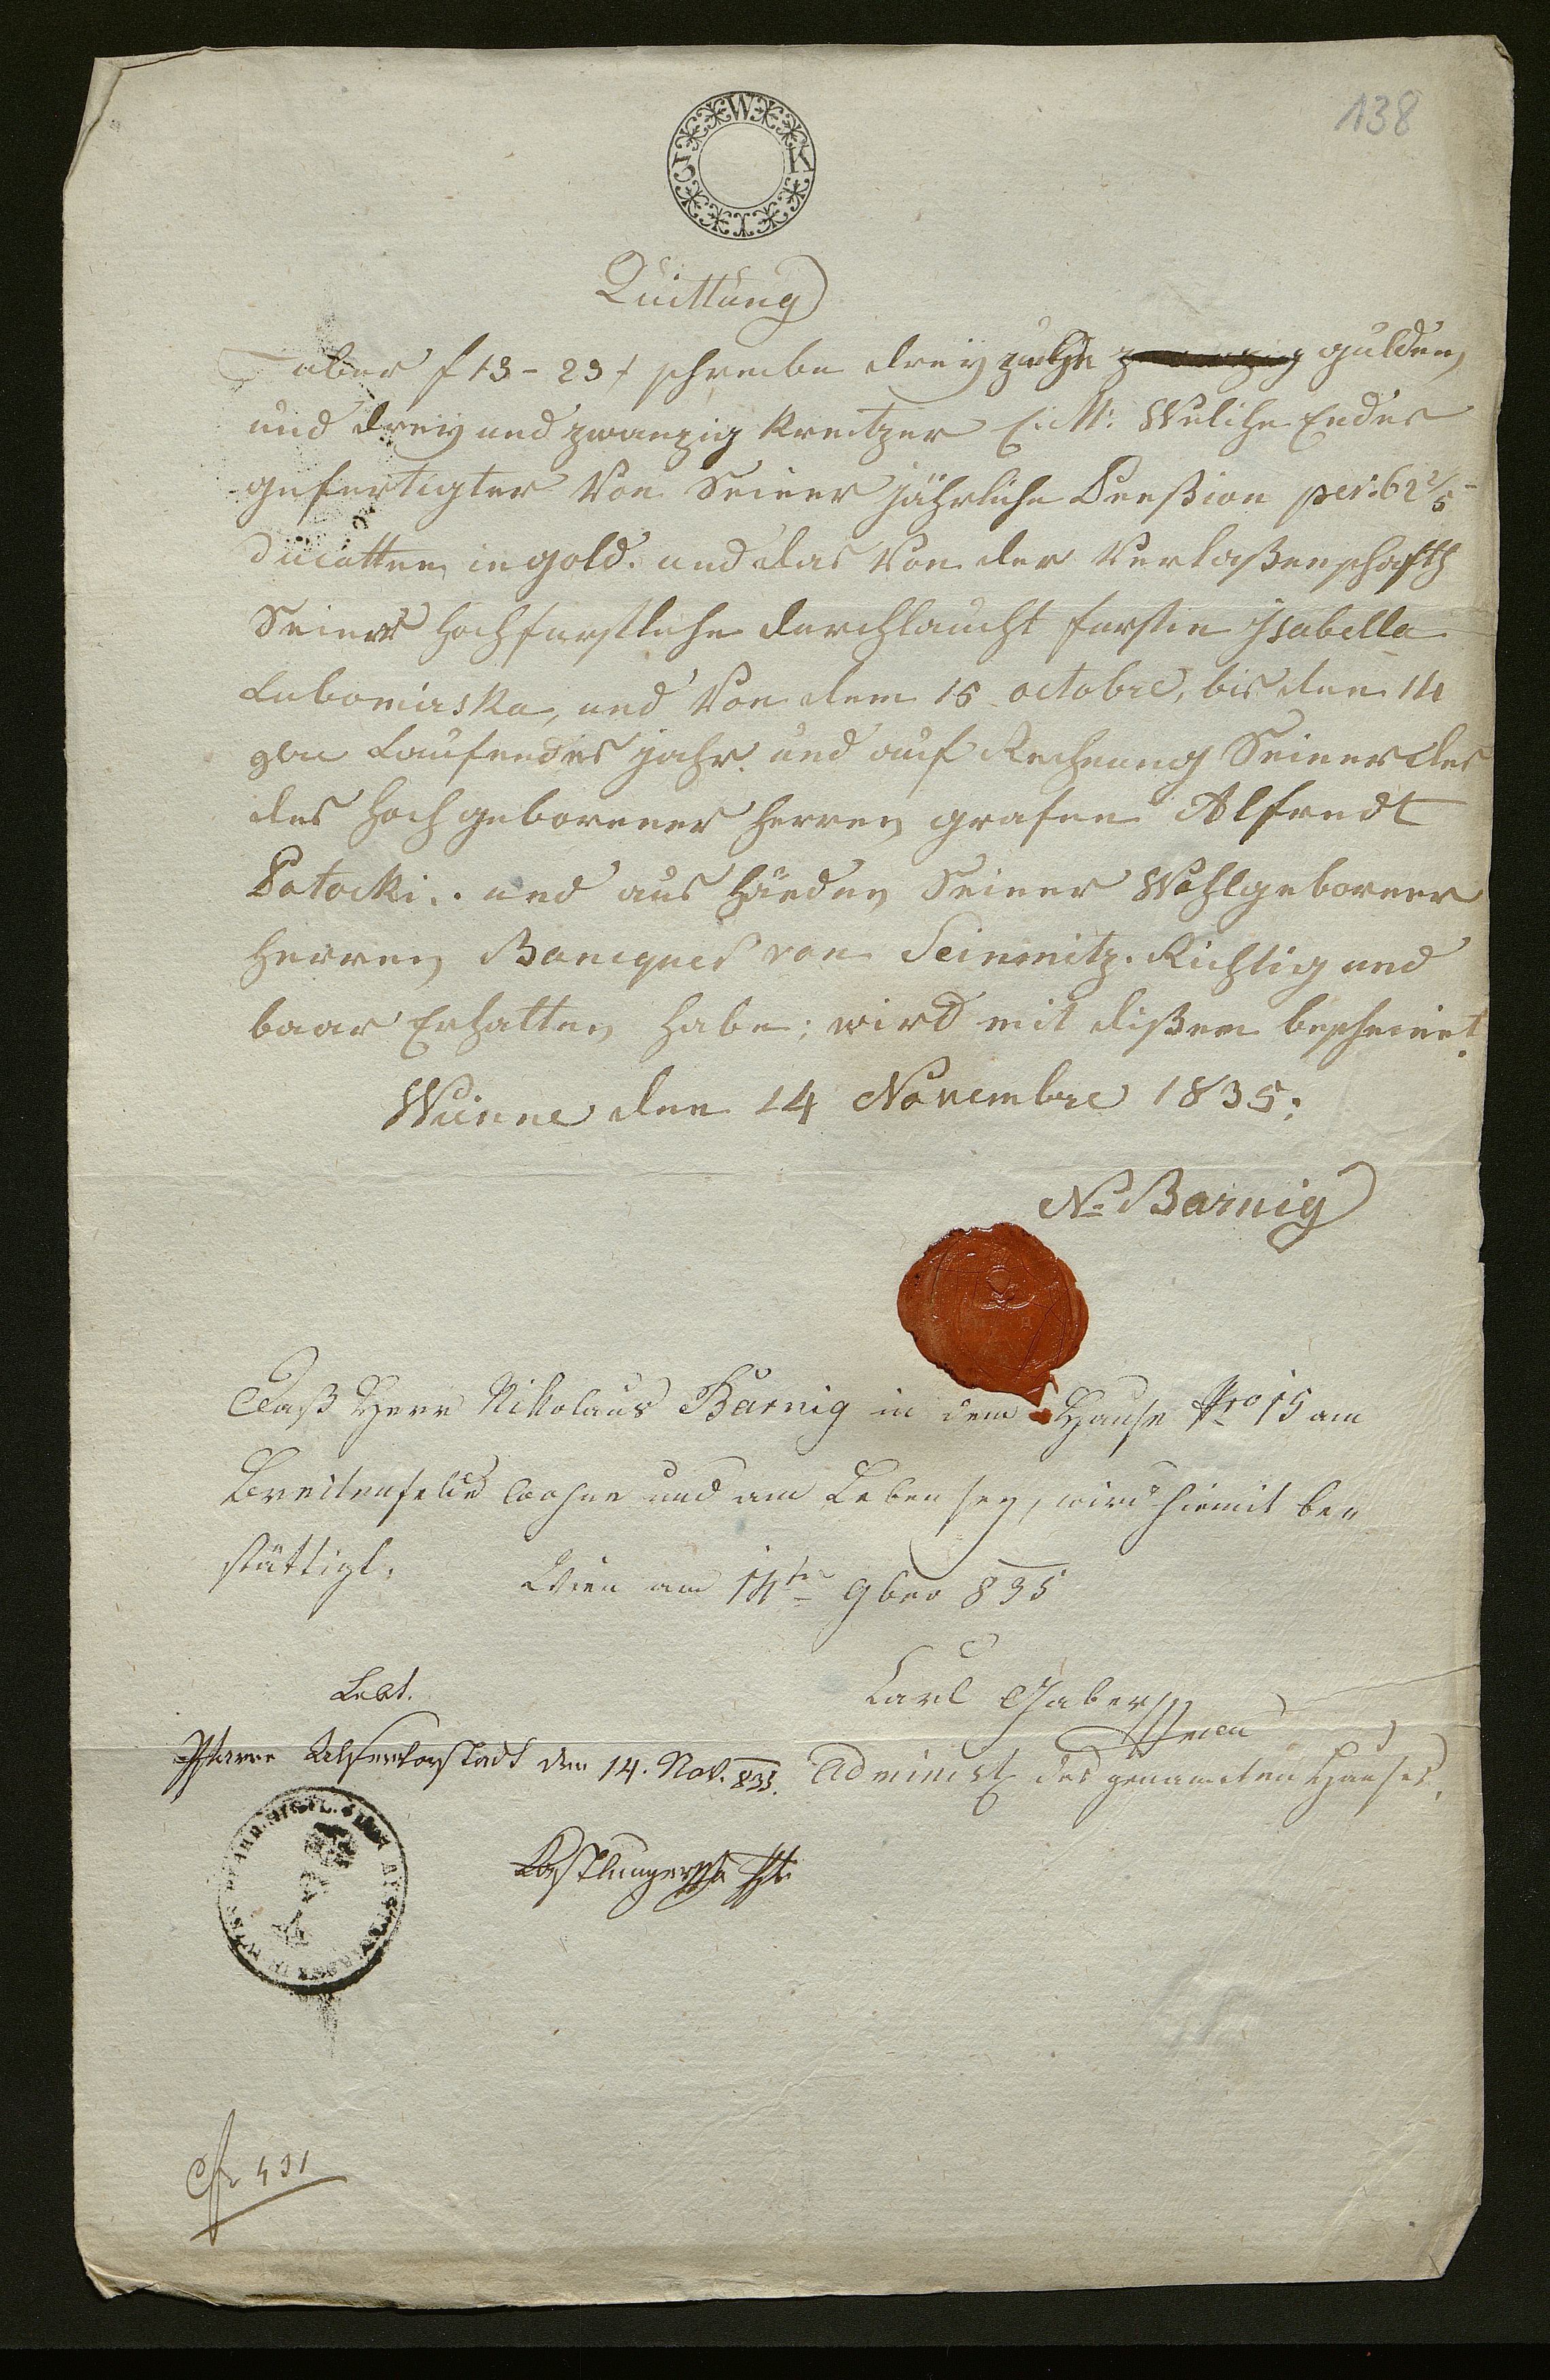 138
W K I C
Quittung
über f 13 - 23 x schreibe dreyzehn zwanzig gulden
und drey und zwanzig Kreitzer C: M: Welche Endes
gefertigter Von Seiner jährliche Penßion per: 62 2/5
ducatten in gold. und das Von der Verlaßenschafth
Seiner Hochfurstliche durchlaucht furstin Isabella
Lubomirska, und Von dem 15 octobre, bis den 14
9bre Laufendes jahr. und auf Rechnung Seiner des
des Hochgeborener Herren grafen Alfredt
Potocki.. und aus Händen Seiner Wohlgeborner
Herren Banquer von Steinmitz. Richtig und
baar Erhalten habe; wird mit dißem bescheinet.
Wienne den 14 Novembre 1835;
N= Barnig
Daß Herr Nikolaus Barnig in dem Hause Nro 15 am
Breitenfelde wohne und am Leben sey, wird hiemit be„
stättigt.
Wien am 14te 9ber 835
Lebt.
Carl Gaber
Pfarre Alservorstadt den 14. Nov. 835.
Administ des genannten Hauses.
431